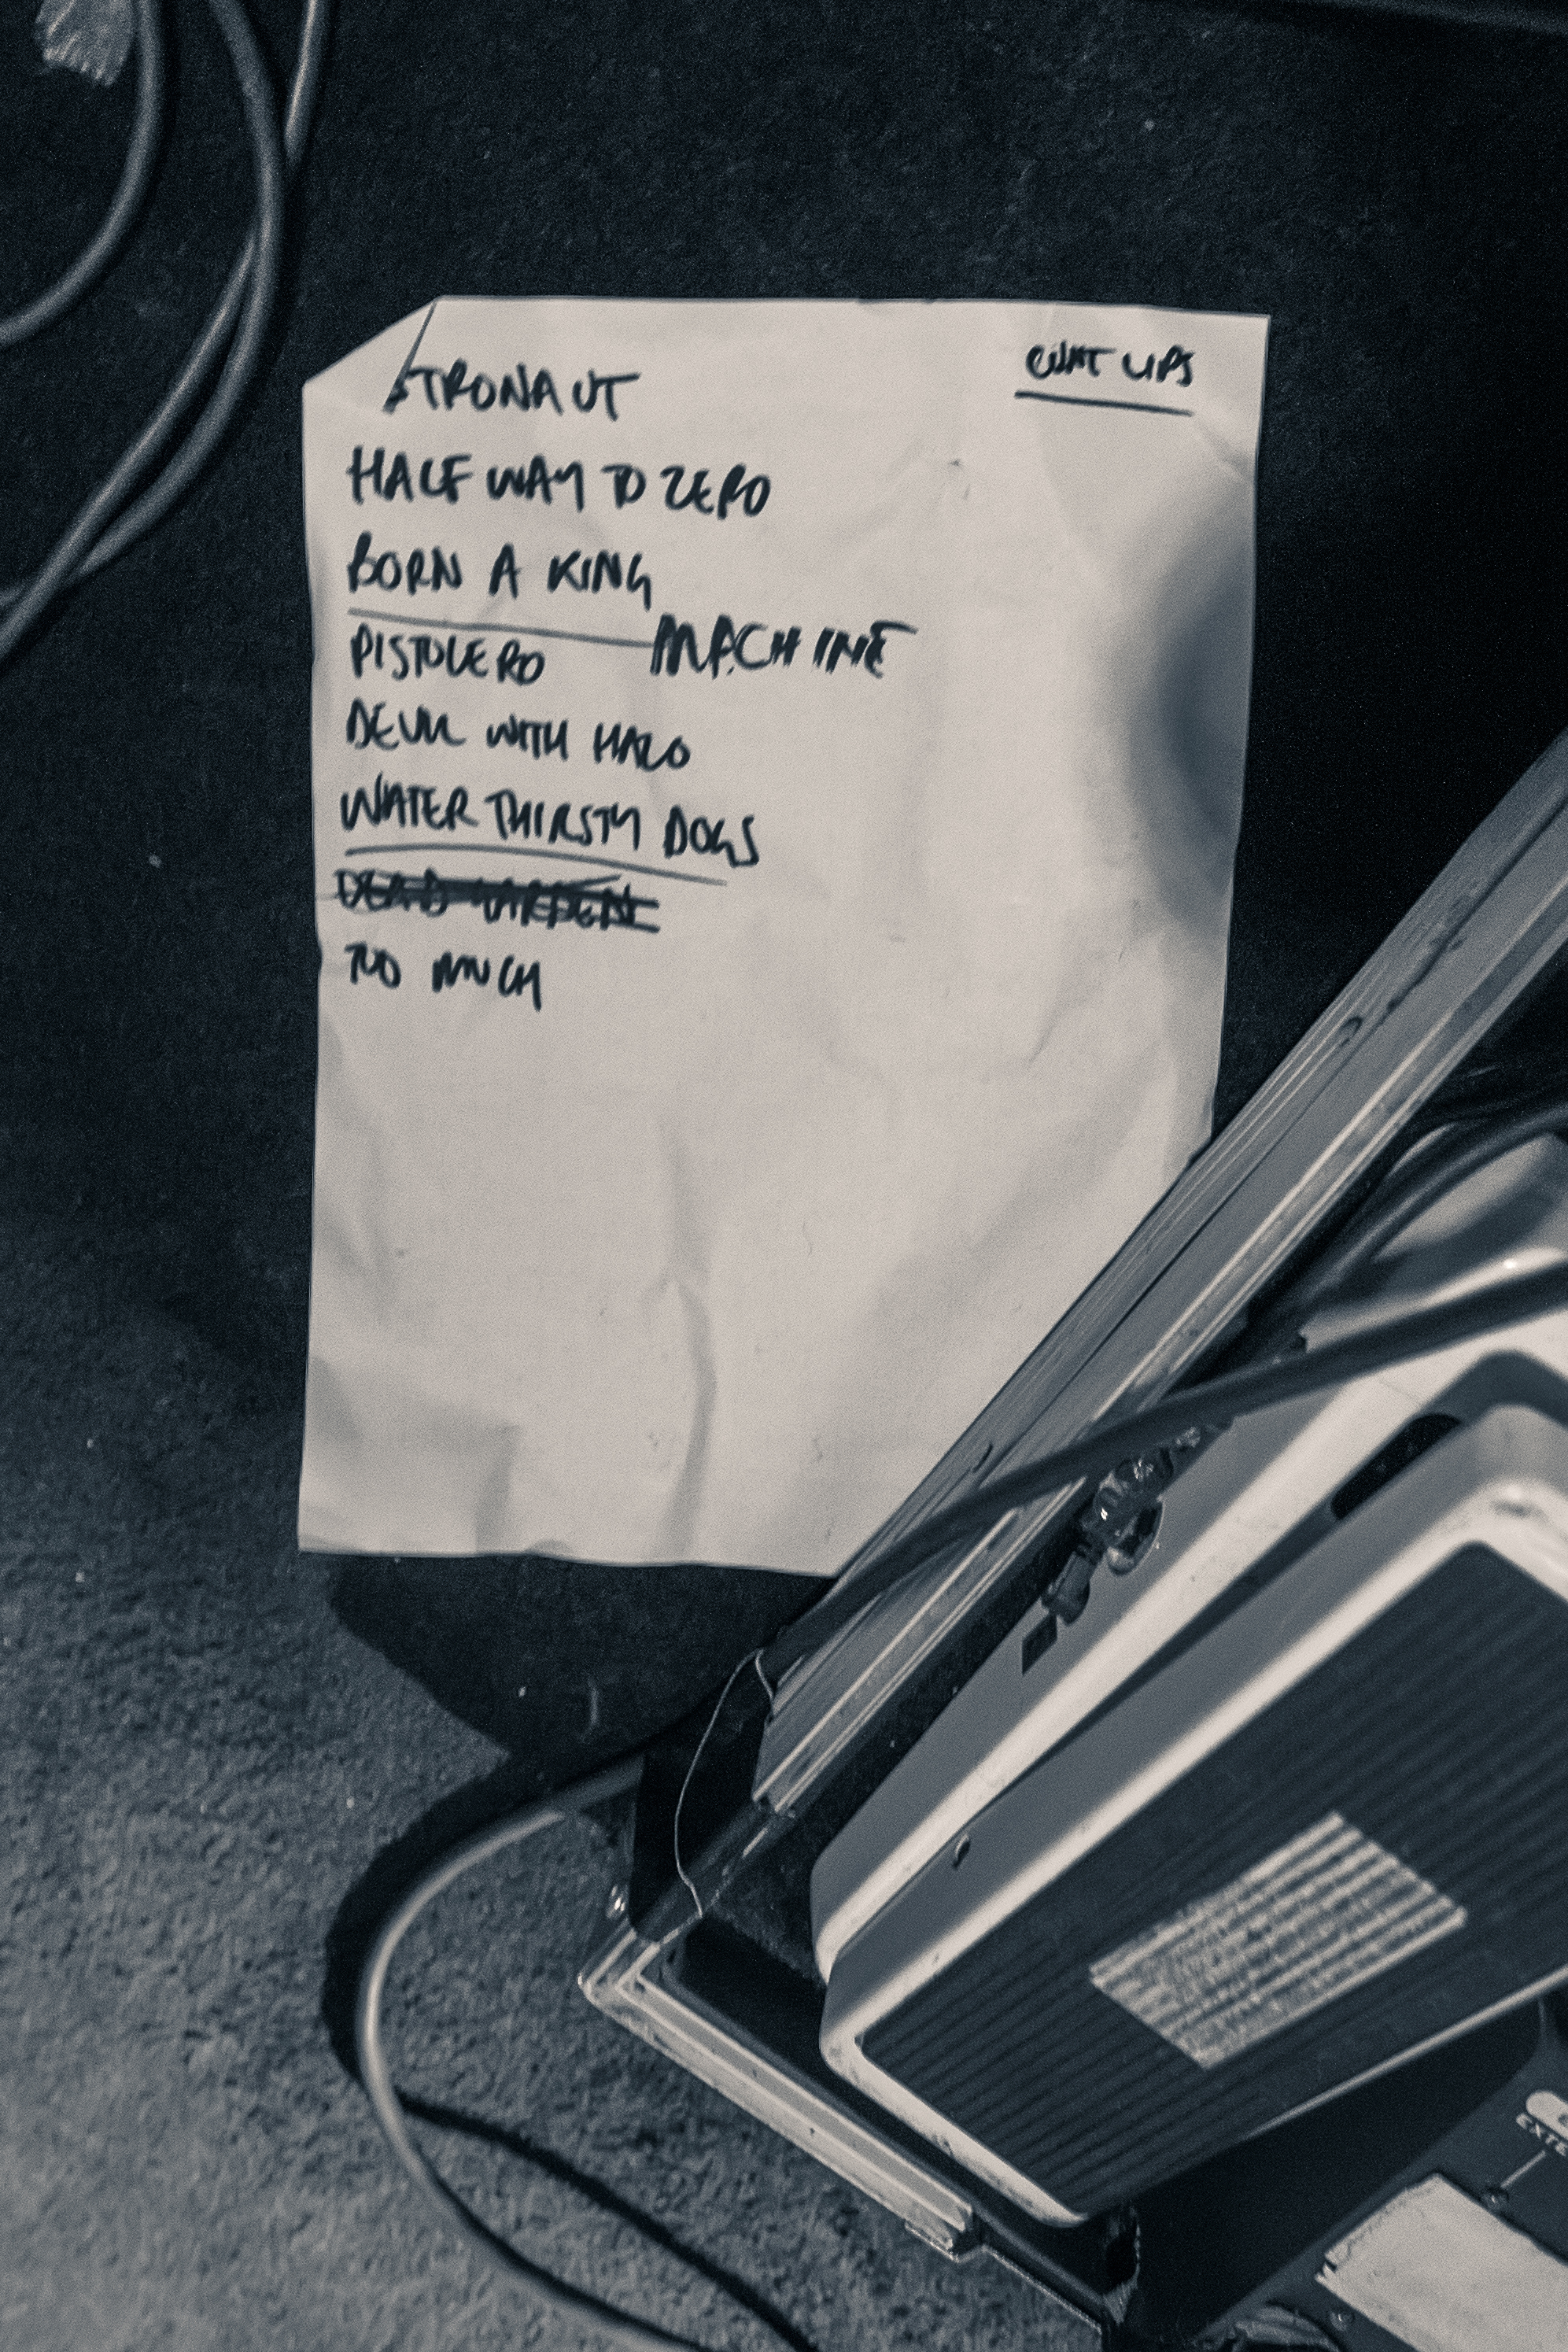 STRONAUT
CUNT LIPS
HALF WAY TO ZERO
BORN A KING
MACHINE
PISTOLERO
DEVIL WITH HALO
WATER THIRSTY DOGS
DEAD GARDEN
TOO MUCH
EXTE